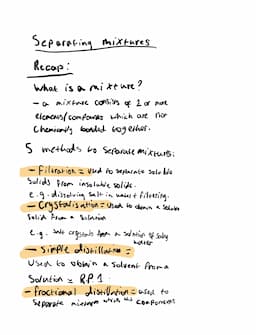 Separating mixtures
Recap:
What is a mixture?
- a mixture consists of 2 or more
elements/compounds which are not
chemically bonded together.
5 methods to separate mixtures:
- Filtration = used to separate soluble
solids from insoluble solids.
e.g. dissolving salt in water & filtering.
- Crystallisation = used to obtain a soluble
solid from a solution
e.g. salt crystals from a solution of salty
water
- Simple distillation =
Used to obtain a solvent from a
Solution = RP1.
- fractional distillation = used to
separate mixtures which components